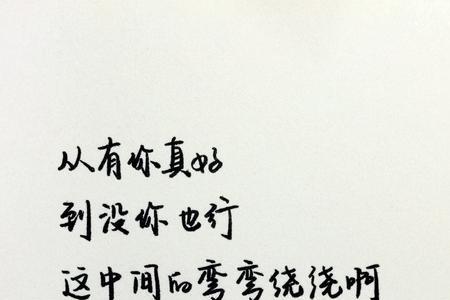 从有你真好
到没你也行
这中间的弯弯绕绕啊